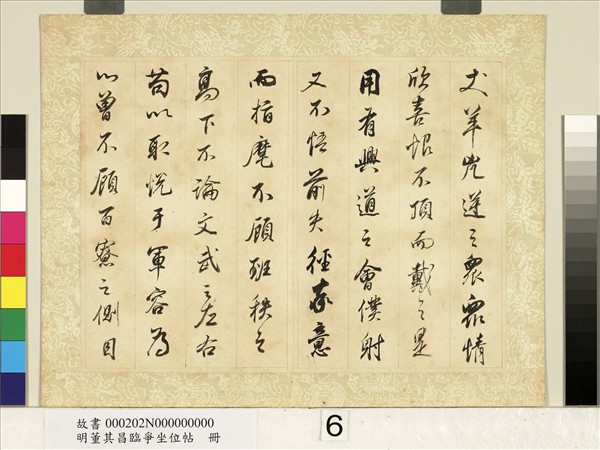 犬羊兇逆之眾眾情
欣喜恨不頂而戴之是
用有興道之會僕射
又不悟前失徑率意
而指麾不顧班秩之
高下不論文武之左右
苟以取悅于軍容為
心曾不顧百寮之側目
故書 000202N000000000
明董其昌臨爭坐位帖 冊
6